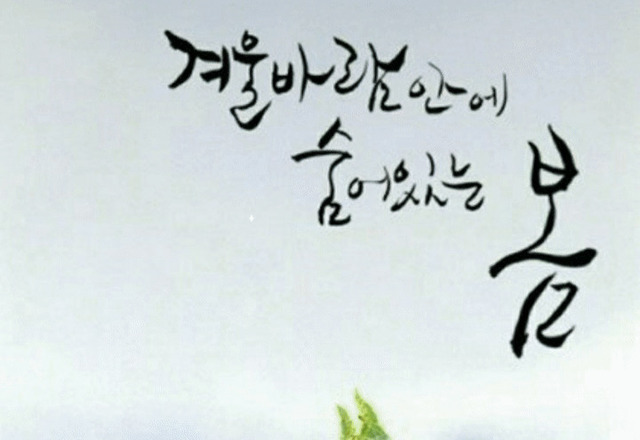 겨울바람 안에
숨어있는 봄